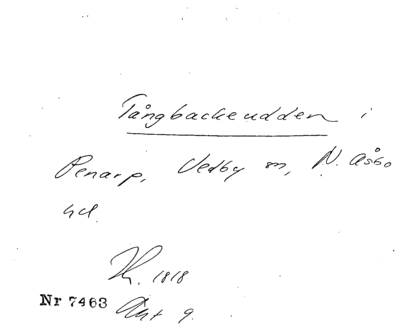 Tångbackeudden i
Penarp, Vedby sn, N. Åsbo
hd.
1818
Nr 7463 Akt 9.